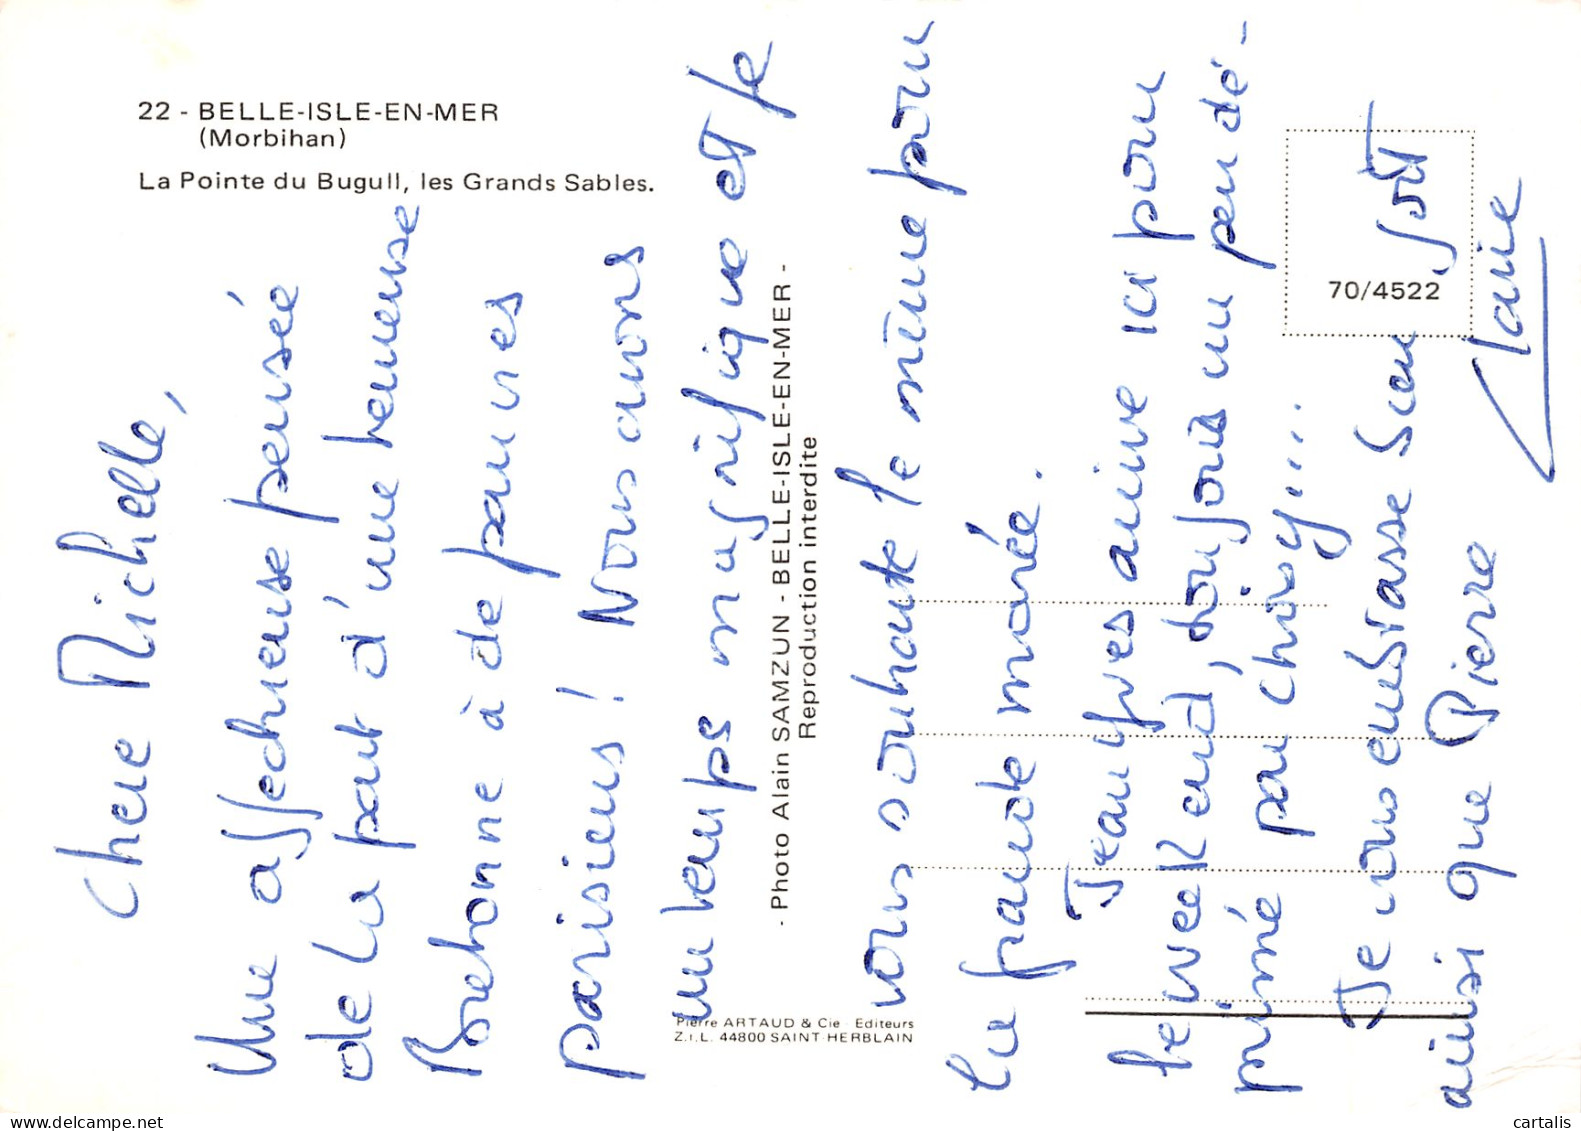 22 - BELLE-ISLE-EN-MER
(Morbihan)
La Pointe du Bugull, les Grands Sables.
Chere Michelle,
Une affectueuse pensée
de la part d'une heureuse
Bretonne à de pauvres
parisiens ! Nous avons
un temps magnifique et je
- Photo Alain SAMZUN - BELLE-ISLE-EN-MER -
Reproduction interdite
Pierre ARTAUD & Cie Editeurs
Z.I.L. 44800 SAINT-HERBLAIN
vous souhaite le même pour
la grande marée.
Jean Yves arrive ici pour
le week end, toujours un peu dé-
primé par
Je vous embrasse bien fort
ainsi que Pierre
70/4522
cartalis